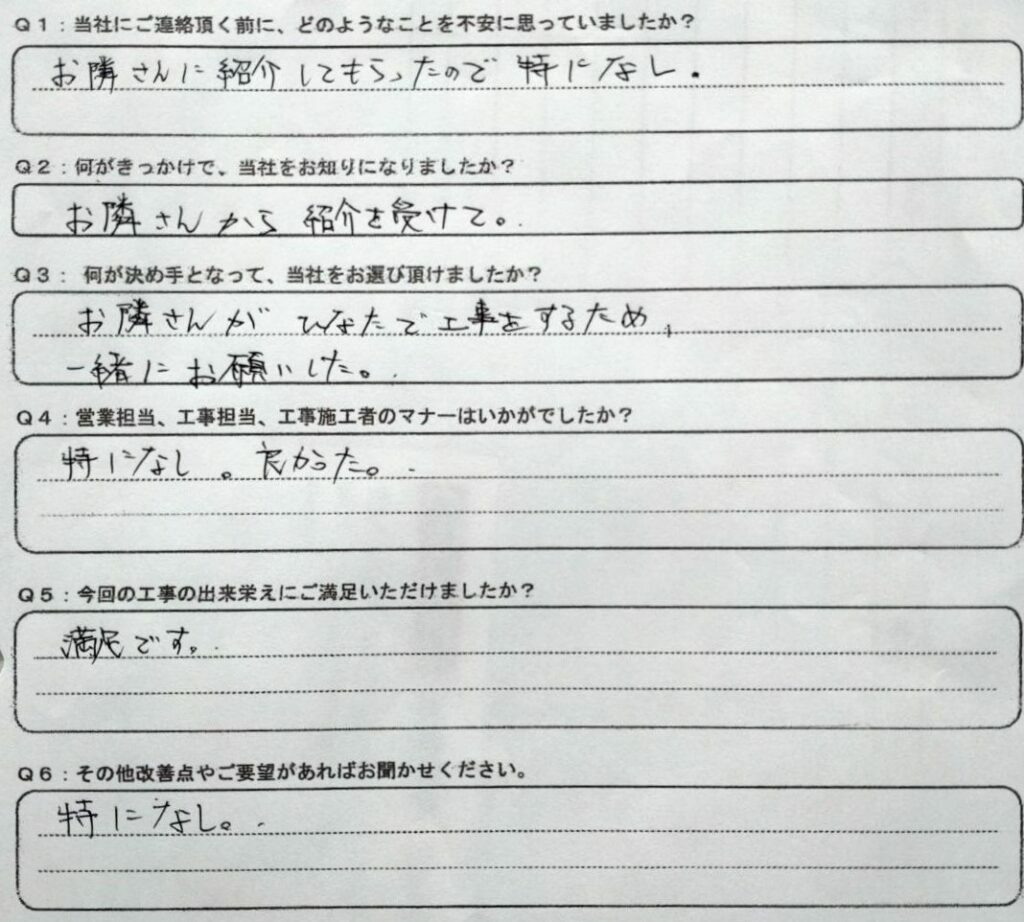 Q1:当社にご連絡頂く前に、どのようなことを不安に思っていましたか?
お隣さんに紹介してもらったので特になし。
Q2:何がきっかけで、当社をお知りになりましたか?
お隣さんから紹介を受けて。
Q3: 何が決め手となって、当社をお選び頂けましたか?
お隣さんがひなたで工事をするため、
一緒にお願いした。
Q4:営業担当、工事担当、工事施工者のマナーはいかがでしたか?
特になし。良かった。
Q5:今回の工事の出来栄えにご満足いただけましたか?
満足です。
Q6:その他改善点やご要望があればお聞かせください。
特になし。